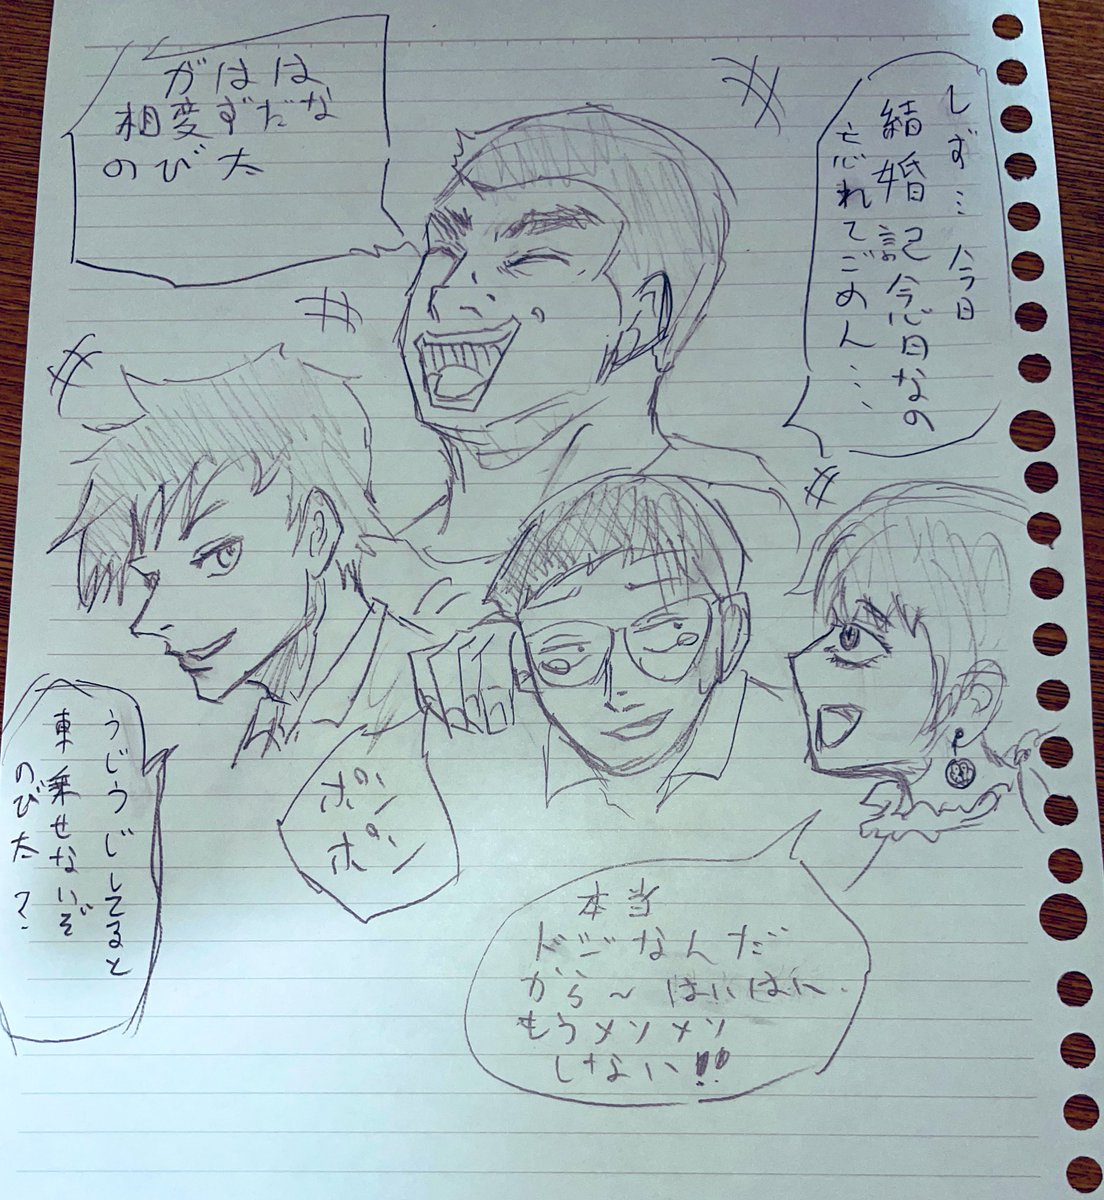 しず… 今日
結婚記念日なの
忘れてごめん…
がはは
相変ずだな
のび太
うじうじしてると
車乗せないぞ
のび太？
ポン
ポン
本当
ドジなんだ
から～はいはい
もうメソメソ
しない!!